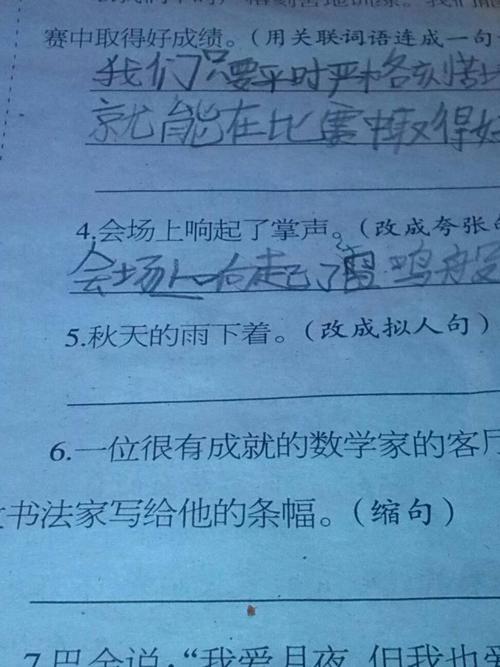 赛中取得好成绩。(用关联词语连成一句
我们只要平时严格刻苦
就能在比赛中取得好
4.会场上响起了掌声。(改成夸张
会场上响起了雷鸣般
5.秋天的雨下着。(改成拟人句)
6.一位很有成就的数学家的客厅
书法家写给他的条幅。(缩句)
7.巴金说:“我爱月夜,但我也爱